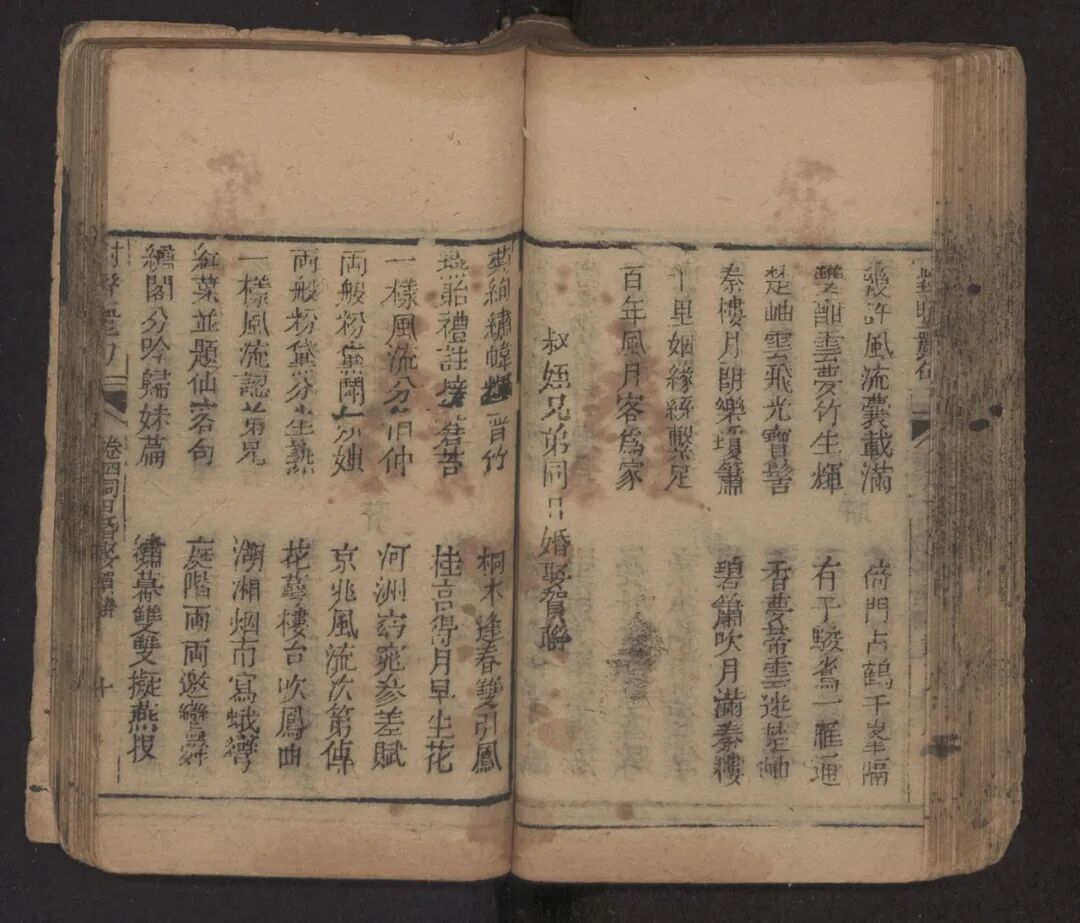 幾許風流囊載滿 門占鶴千隔
雙生輝 有子一雁通
楚岫雲飛光寶髻 香夢帶雲迷楚岫
秦樓月朗樂瓊簫 碧簫吹月滿秦樓
千里姻緣絲繫足
百年風月客爲家
叔姪兄弟同日婚娶賀聯
絢繡幃晋竹 桐木逢春雙引鳳
燕貽禮註 桂宮得月早生花
一樣風流分伯仲 河洲窈窕參差賦
両般粉黛鬪 京兆風流次第傳
両般粉黛分生熟 花萼樓台吹鳳曲
一樣風流認弟兄 湘烟寫蛾彎
紅葉並題仙客句 庭階両両邀鸞舞
繡閣分吟歸妹篇 繡幕雙雙擬燕投
卷四同日婚娶賀聯 十